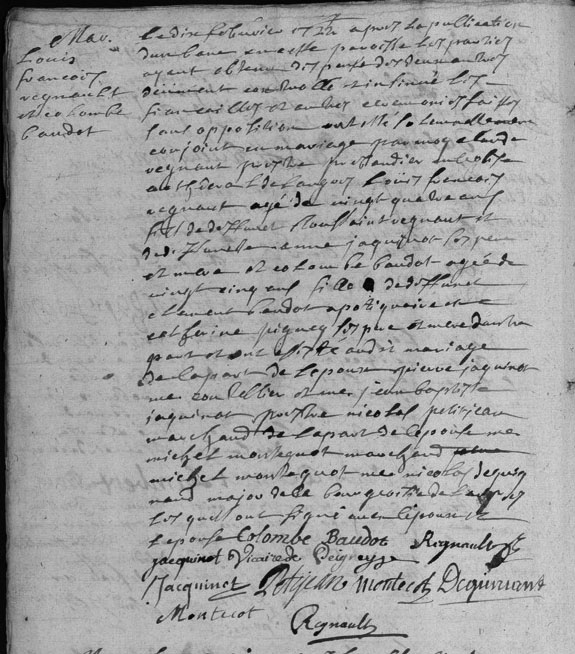 Mar.
Louis
francois
regnault
et colombe
baudot
Le dix febvrier 1722 apres la publication
dun banc en cette paroisse les parties
ayent obtenu dispense des deux autres
deument controlle et insinué les
fiancailles et autres ceremonies faittes
sans opposition ont esté solennellement
conjoint en mariage par moy claude
regnaut prestre
de Langres Louis francois
regnaut agé de vingt quatre ans
fils de deffunct toussaint regnaut et
de deffuncte anne jaquinot ses pere
et mere et colombe baudot agée de
vingt cinq ans fille de deffunct
clement baudot apotiquaire et
catherine ses pere et mere dautre
part et ont assisté audit mariage
de la part de lepoux pierre jaquinot
me coutellier et me jean baptiste
jaquinot prestre nicolas petitjean
marchand de la part de lepouse me
michel montequot marchand
michel montequot me nicolas dequi
nand major de la bourgeoisie de Langres
lesquels ont signé avec lepoux et
lepouse Colombe Baudot Regnault
jacquinot vicaire de
Jacquinot Petitjean Montecot Dequinand
Montecot
Regnault